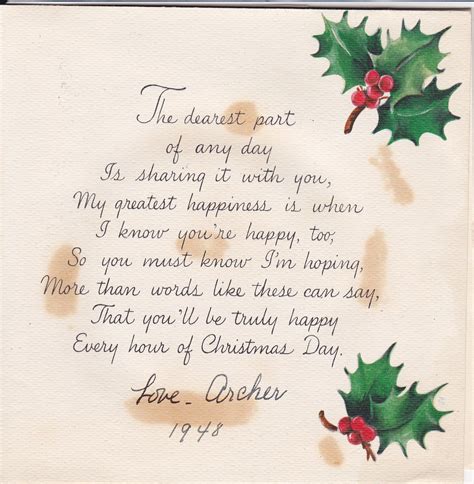 The dearest part
of any day
Is sharing it with you,
My greatest happiness is when
I know you're happy, too;
So you must know I'm hoping,
More than words like these can say,
That you'll be truly happy
Every hour of Christmas Day.
Love - Archer
1948